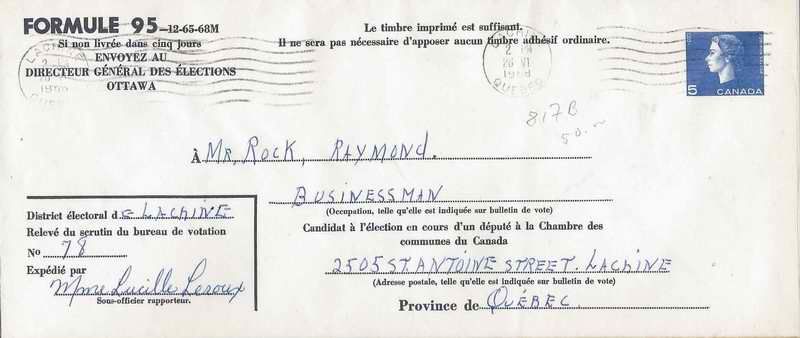 FORMULE 95—12-65-68M
Si non livrée dans cinq jours
ENVOYEZ AU
DIRECTEUR GÉNÉRAL DES ÉLECTIONS
OTTAWA
Le timbre imprimé est suffisant.
Il ne sera pas nécessaire d'apposer aucun timbre adhésif ordinaire.
LACHINE
2 PM
26 VI
1968
QUÉBEC
5 CANADA
817B
50.—
À MR, ROCK, RAYMOND.
BUSINESSMAN
(Occupation, telle qu'elle est indiquée sur bulletin de vote)
Candidat à l'élection en cours d'un député à la Chambre des
communes du Canada
2505 ST. ANTOINE STREET. LACHINE
(Adresse postale, telle qu'elle est indiquée sur bulletin de vote)
Province de QUÉBEC.
District électoral de LACHINE
Relevé du scrutin du bureau de votation
No 78
Expédié par
Mme Lucille Leroux
Sous-officier rapporteur.